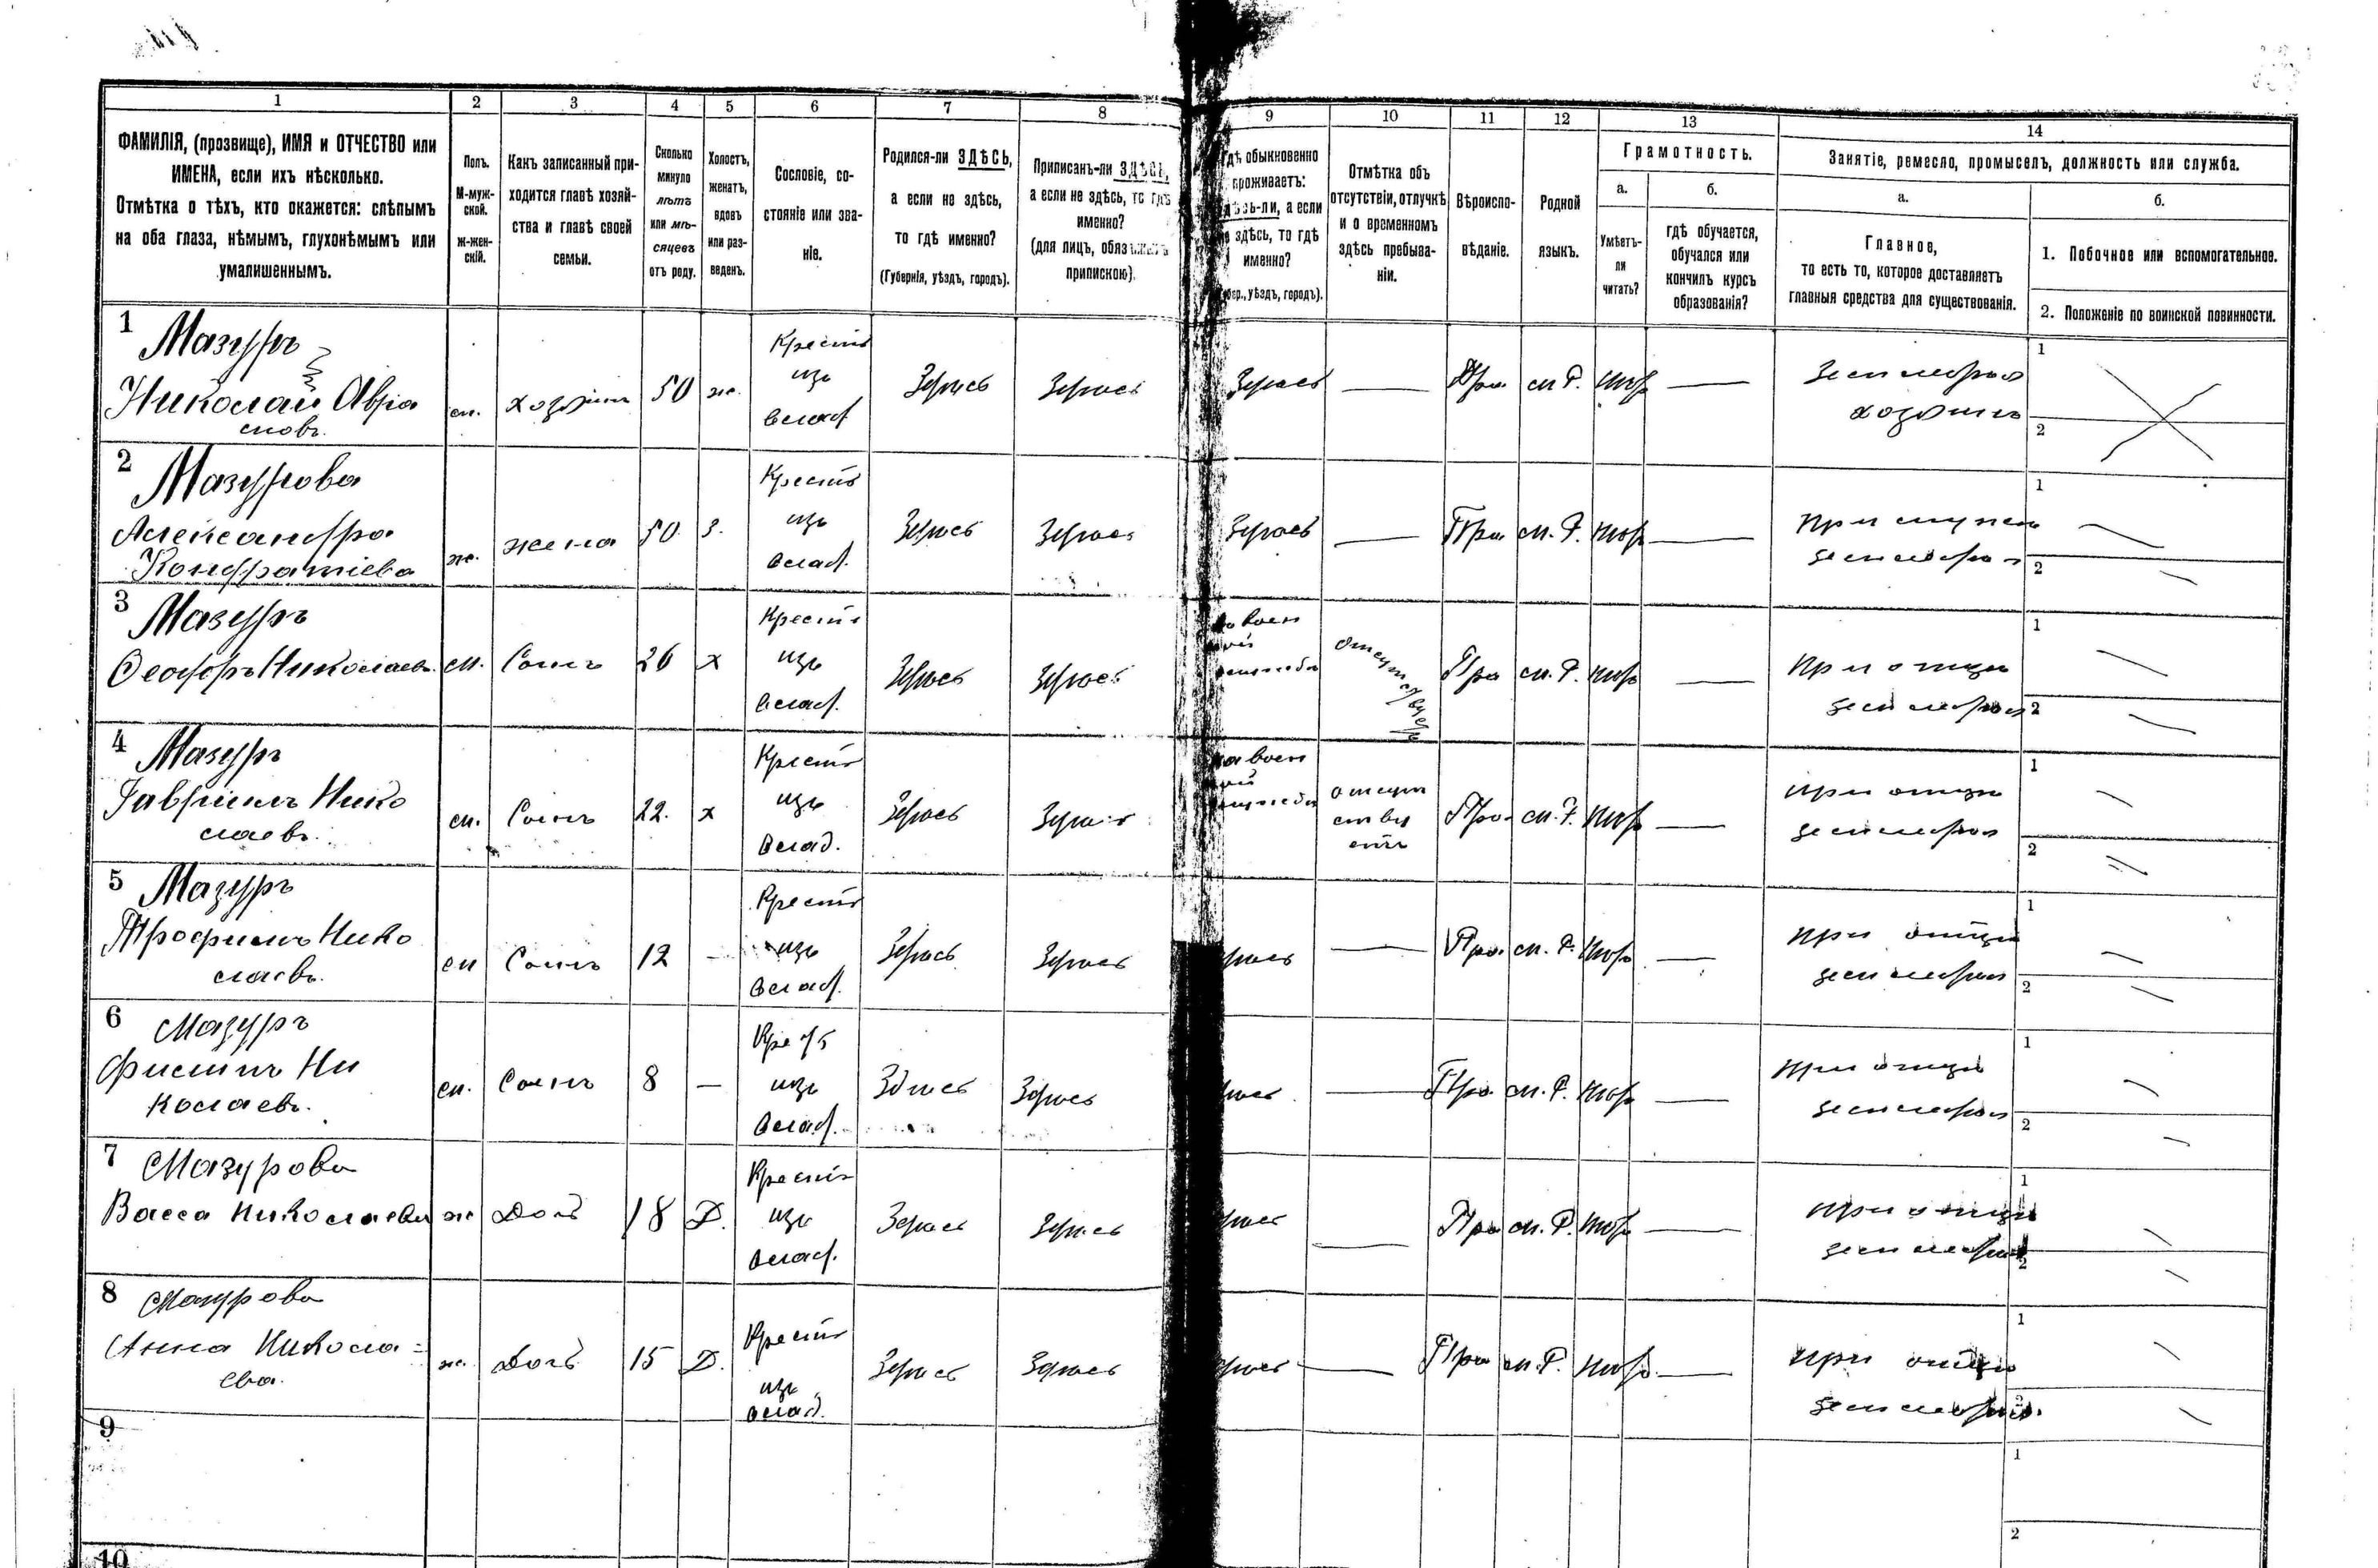 1 2 3 4 5 6 7 8 9 10 11 12 13 14
ФАМИЛІЯ, (прозвище), ИМЯ и ОТЧЕСТВО или
ИМЕНА, если ихъ нѣсколько.
Отмѣтка о тѣхъ, кто окажется: слѣпымъ
на оба глаза, нѣмымъ, глухонѣмымъ или
умалишеннымъ.
Полъ.
М-муж-
ской.
ж-жен-
скій.
Какъ записанный при-
ходится главѣ хозяй-
ства и главѣ своей
семьи.
Сколько
минуло
лѣтъ
или мѣ-
сяцевъ
отъ роду.
Холостъ,
женатъ,
вдовъ
или раз-
веденъ.
Сословіе, со-
стояніе или зва-
ніе.
Родился-ли ЗДѢСЬ,
а если не здѣсь,
то гдѣ именно?
(Губернія, уѣздъ, городъ).
Приписанъ-ли ЗДѢСЬ,
а если не здѣсь, то гдѣ
именно?
(для лицъ, обязанныхъ
припискою).
Гдѣ обыкновенно
проживаетъ:
здѣсь-ли, а если
не здѣсь, то гдѣ
именно?
(Губер., уѣздъ, городъ).
Отмѣтка объ
отсутствіи, отлучкѣ
и о временномъ
здѣсь пребыва-
ніи.
Вѣроиспо-
вѣданіе.
Родной
языкъ.
Грамотность.
а.
Умѣетъ-
ли
читать?
б.
гдѣ обучается,
обучался или
кончилъ курсъ
образованія?
Занятіе, ремесло, промыселъ, должность или служба.
а.
Главное,
то есть то, которое доставляетъ
главныя средства для существованія.
б.
1. Побочное или вспомогательное.
2. Положеніе по воинской повинности.
1 Мазуръ
Николай Авра
мовъ.
м. хозяинъ 50 ж.
Крестъ
изъ
влад.
Здѣсь Здѣсь Здѣсь — Пра м. Р. нѣтъ —
земледѣл
хозяинъ
1
2
2 Мазурова
Александра
Кондратіева
ж. жена 50. З.
Крестъ
изъ
влад.
Здѣсь Здѣсь Здѣсь — Пра м. Р. нѣтъ —
при мужѣ
земледѣл
1
2
3 Мазуръ
Ѳеодоръ Николаев.
м. Сынъ 26 х
Крестъ
изъ
влад.
Здѣсь Здѣсь
на воен
ной
службѣ
отсутствуетъ
Пра м. Р. нѣтъ —
при отцѣ
земледѣл
1
2
4 Мазуръ
Гавріилъ Нико
лаевъ.
м. Сынъ 22. х
Крестъ
изъ
влад.
Здѣсь Здѣсь
на воен
ной
службѣ
отсут
ству
етъ
Пра м. Р. нѣтъ —
при отцѣ
земледѣл
1
2
5 Мазуръ
Трофимъ Нико
лаевъ.
м Сынъ 12 —
Крестъ
изъ
влад.
Здѣсь Здѣсь Здѣсь — Пра. м. Р. нѣтъ —
при отцѣ
земледѣл
1
2
6 Мазуръ
Ни
колаевъ.
м. Сынъ 8 —
Крестъ
изъ
влад.
Здѣсь Здѣсь Здѣсь — Пра. м. Р. нѣтъ —
при отцѣ
земледѣл
1
2
7 Мазурова
Васса Николаева
ж Дочь 18 Д.
Крестъ
изъ
влад.
Здѣсь Здѣсь Здѣсь — Пра м. Р. нѣтъ —
при отцѣ
земледѣл
1
2
8 Мазурова
Анна Никола=
ева.
ж. Дочь 15 Д.
Крестъ
изъ
влад.
Здѣсь Здѣсь Здѣсь — Пра м. Р. нѣтъ —
при отцѣ
земледѣл.
1
2
9
1
2
10